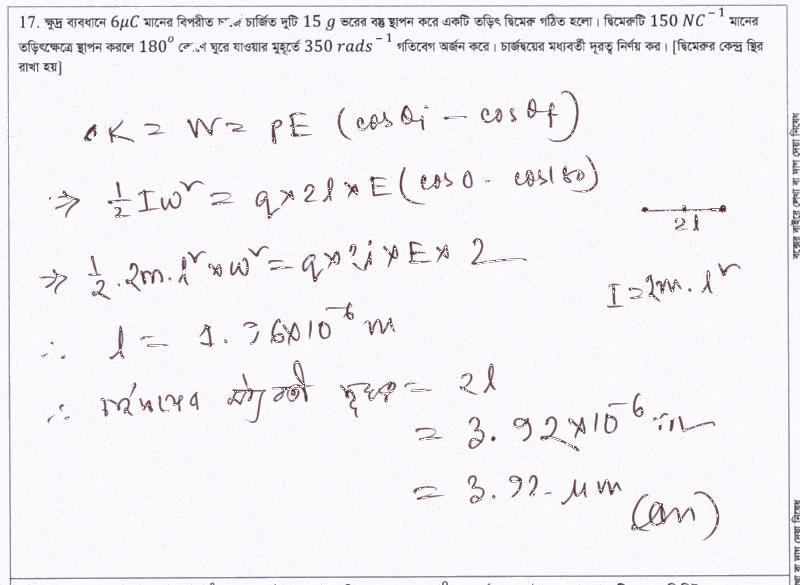 17. ক্ষুদ্র ব্যবধানে 6μC মানের বিপরীত চার্জিত দুটি 15 g ভরের বস্তু স্থাপন করে একটি তড়িৎ দ্বিমেরু গঠিত হলো। দ্বিমেরুটি 150 NC⁻¹ মানের
তড়িৎক্ষেত্রে স্থাপন করলে 180° কোণে ঘুরে যাওয়ার মুহূর্তে 350 rads⁻¹ গতিবেগ অর্জন করে। চার্জদ্বয়ের মধ্যবর্তী দূরত্ব নির্ণয় কর। [দ্বিমেরুর কেন্দ্র স্থির
রাখা হয়]
ΔK = W = PE (cosθi − cosθf)
⇒ ½ Iω² = q × 2l × E (cos0 − cos180)
2l
⇒ ½ . 2m . l² × ω² = q × 2l × E × 2
I = 2m . l²
∴ l = 1.96×10⁻⁶ m
∴ চার্জদ্বয়ের মধ্যবর্তী দূরত্ব = 2l
= 3.92×10⁻⁶ m
= 3.92 μm
(Ans)